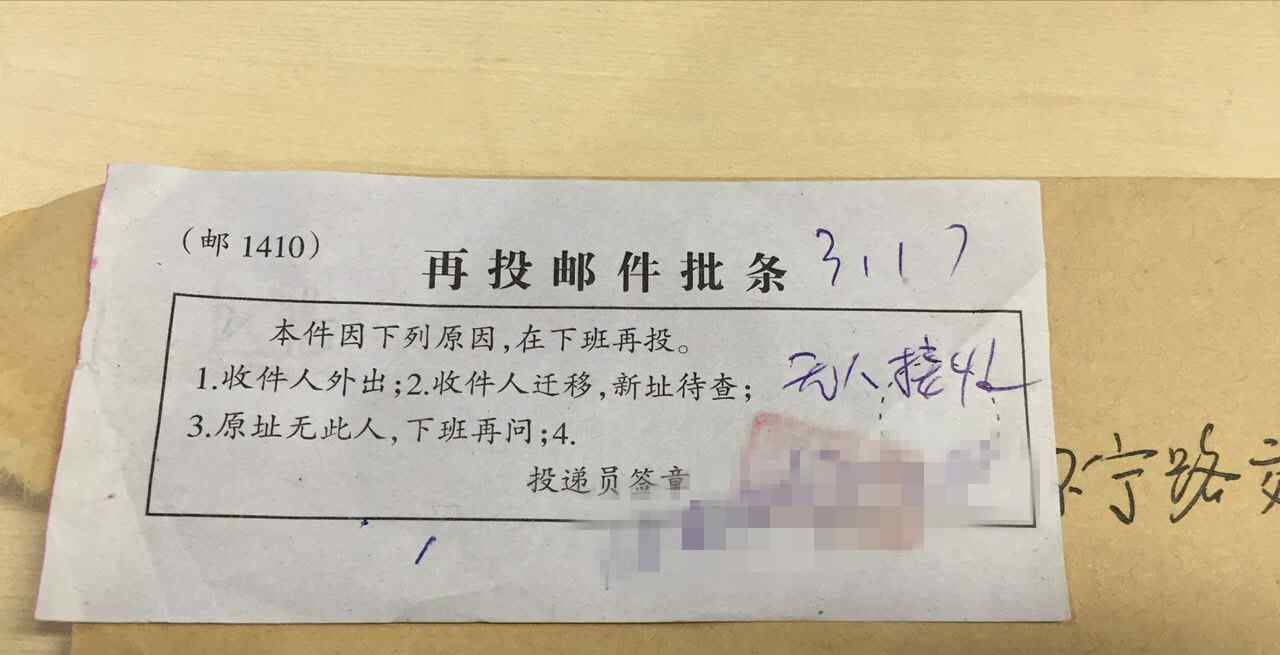 (邮 1410)
再投邮件批条 3.17
本件因下列原因,在下班再投。
1.收件人外出;2.收件人迁移,新址待查;
无人接收
3.原址无此人,下班再问;4.
投递员签章
宁路